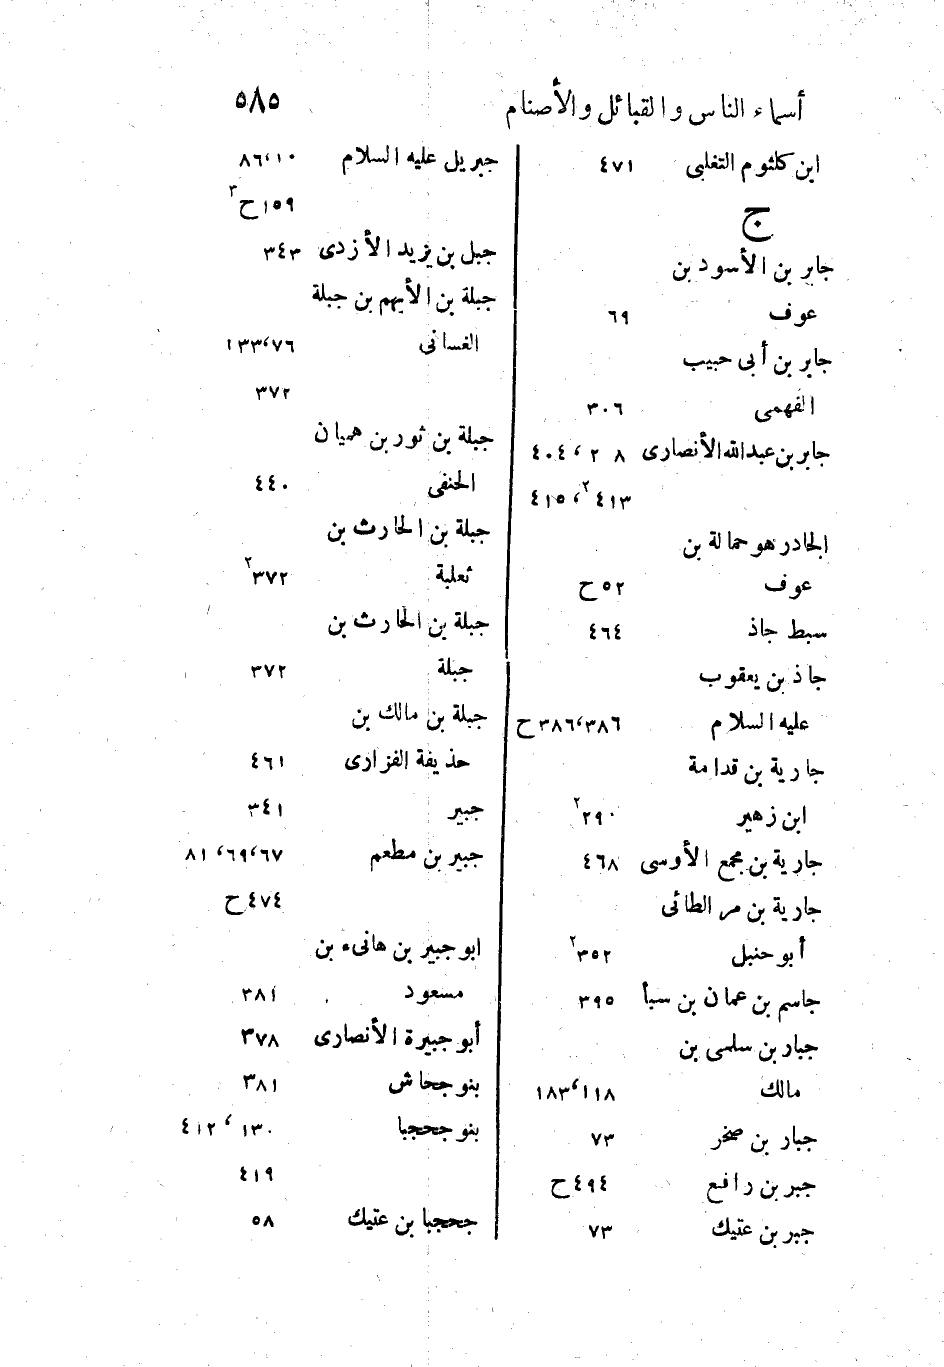 أسماء الناس والقبائل والأصنام ٥٨٥
ابن كلثوم التغلبى ٤٧١
ج
جابر بن الأسود بن
عوف ٦٩
جابر بن أبى حبيب
الفهمى ٣٠٦
جابر بن عبدالله الأنصارى ٢٠٨، ٤٠٤
٤١٣٢، ٤١٥
الجادر هو حمالة بن
عوف ٥٢ح
سبط جاذ ٤٦٤
جاذ بن يعقوب
عليه السلام ٣٨٦، ٣٨٦ح
جارية بن قدامة
ابن زهير ٢٩٠٢
جارية بن مجمع الأوسى ٤٦٨
جارية بن مر الطائى
أبو حنبل ٣٥٢٢
جاسم بن عمان بن سبأ ٣٩٥
جبار بن سلمى بن
مالك ١١٨، ١٨٣
جبار بن صخر ٧٣
جبر بن رافع ٤٩٤ح
جبر بن عتيك ٧٣
جبريل عليه السلام ١٠، ٨٦
١٥٩ح٣
جبل بن يزيد الأزدى ٣٤٣
جبلة بن الأيهم بن جبلة
الغسانى ٧٦، ١٣٣
٣٧٢
جبلة بن ثور بن هميان
الحنفى ٤٤٠
جبلة بن الحارث بن
ثعلبة ٣٧٢٢
جبلة بن الحارث بن
جبلة ٣٧٢
جبلة بن مالك بن
حذيفة الفزارى ٤٦١
جبير ٣٤١
جبير بن مطعم ٦٧، ٦٩، ٨١
٤٧٤ح
ابو جبير بن هانىء بن
مسعود ٣٨١
أبو جبيرة الأنصارى ٣٧٨
بنو جحاش ٣٨١
بنو جحجبا ١٣٠، ٤١٢
٤١٩
جحجبا بن عتيك ٥٨